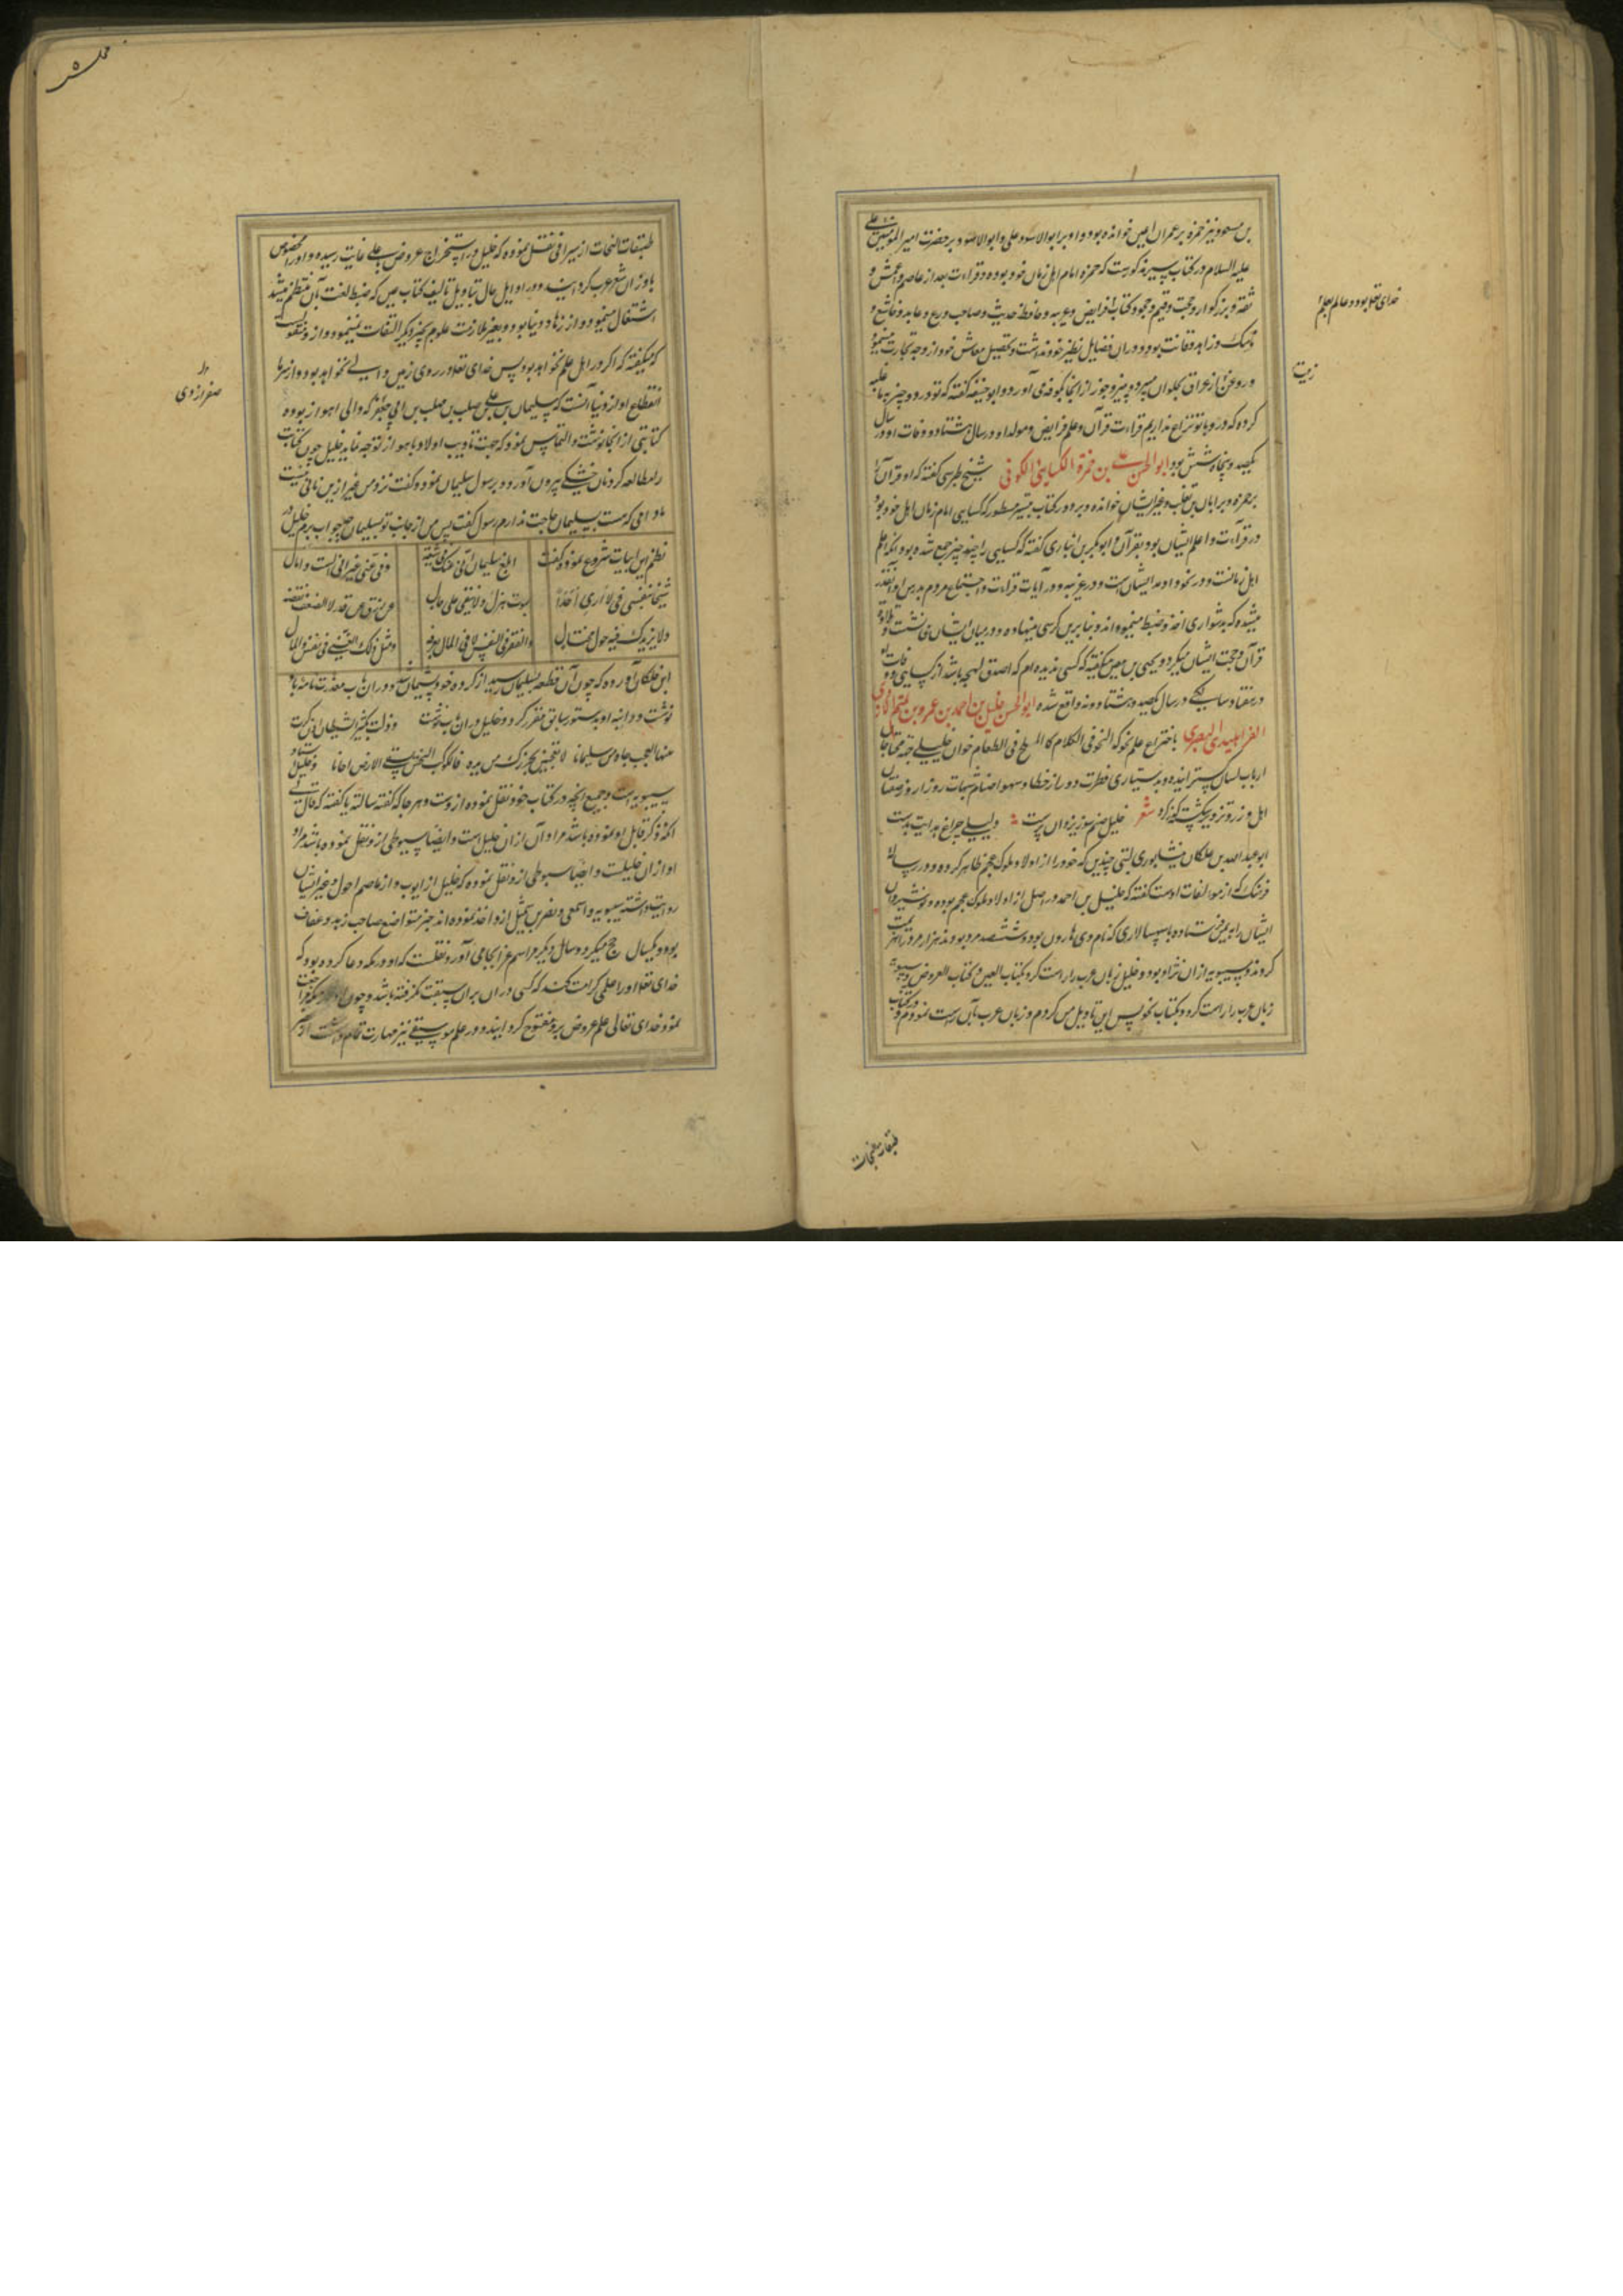 بن مسعود نیز حمزه بر عمران اعین خوانده بود و او بر ابو الاسود علی و ابو الاسود بر حضرت امیر المؤمنین علی
علیه السلام در کتاب تیسیر مذکورست که حمزه امام اهل زمان خود بوده در قراءت بعد از عاصم و اعمش و
ثقه و بزرگوار و حجت و قیم و مجود کتاب فرایض و عربیه و حافظ حدیث و صاحب ورع و عابد و خاشع و
خدای تعالی بود و عالم
نسک و زاهد و قانت بود و در ان فضایل نظیر خود نداشت و تحصیل معاش خود از وجه تجارت مینمود
زیت
و روغن از عراق بحلوان میبرد و پنیر و جوز از انجا بکوفه می آورد و ابو حنیفه گفته که تو در دو چیز بر ما غلبه
کرده که در و با تو نزاع نداریم قراءت قرآن و علم فرایض و مولد او در سال هشتاد و وفات او در سال
یکصد و پنجاه و شش بود ابو الحسن علی بن حمزة الکسایی الکوفی شیخ طبرسی گفته که او قرآن را
بر حمزه و بر ابان بن تغلب و غیر ایشان خوانده و در کتاب تیسیر مسطور که کسایی امام زمان اهل خود بود
در قراءت و اعلم ایشان بود بقرآن و ابو بکر بن انباری گفته که کسایی را چند چیز جمع شده بود آنکه اعلم
اهل زمانست و در نحو و اوحد ایشان است و در عربیه و در آیات قراءت و اجتماع مردم بدرس او آنقدر
میشده که بدشواری اخذ و ضبط مینمودند و بنابرین کرسی مینهاده و در میان ایشان می نشست و تلاوت
قرآن و حجت ایشان میکرد و یحیی بن معین میگفته که کسی ندیده ام که اصدق لهجه باشد از کسایی و وفات او
در هفتاد سالگی در سال یکصد و هشتاد و نه واقع شده ابو الحسن خلیل بن احمد بن عمرو بن تمیم الازدی
الفراهیدی البصری باختراع علم نحو که النحو فی الکلام کالملح فی الطعام خوان خلیلی جهة محتاجان
ارباب لسان گسترانیده و بدستیاری فطرت دور از خطا و سهو اصنام شبهات روز ار و زمعتان
اهل و زر و تزویر شکسته کرد شعر خلیل صنم سوز یزدان پرست دلیلی چراغ هدایت بدست
ابو عبد الله بن خلکان نیشابوری لبتی چندین که خود را از اولاد ملوک عجم ظاهر کرده و در رساله
فرسنک که از مولفات اوست گفته که خلیل بن احمد در اصل از اولاد ملوک عجم بوده و نوشیروان
ایشان را به یمن فرستاده با سپهسالاری که نام وی هارون بود و ششصد مرد بودند هزار مرد را هزیمت
کردند و سیبویه از ان نژاد بود و خلیل زبان عرب را راست کرد بکتاب العین و کتاب العروض و سیبویه
زبان عرب را راست کرد و بکتاب نحو پس این تاویل من کردم و زبان عرب بآن راست نمودم و در کتاب
طبقات نحات
مجلس ۵
طبقات النحات از سیرافی نقل نموده که خلیل در استخراج عروض باعلی غایت رسیده و او را مخصوص
باوزان شعر عرب گردانید و در اوایل حال تباویل تالیف کتاب عین که ضبط لغت بآن منتظم میشد
اشتغال مینمود و از زهاد دنیا بود و بغیر ملازمت علوم بچیز دیگر التفات نمینمود و از و منقول است
که میگفته که اگر در اهل علم نخواهد بود پس خدای تعالی در روی زمین ولی نخواهد بود و از نوادر
صفرازدی
انقطاع او از دنیا آنست که سلیمان بن علی بن حبیب بن مهلب بن ابی که والی اهواز بوده
کتابتی از انجا نوشت و التماس نمود که جهت تادیب اولاد باهواز توجه نماید خلیل چون کتابت
را مطالعه کرد نان خشکی بیرون آورد و برسول سلیمان نمود و گفت نزد من غیر ازین نانی نیست
مادامی که هست بسلیمان حاجت ندارم رسول گفت پس من از جانب تو بسلیمان چه جواب برم خلیل در
نظم این ابیات شروع نمود و گفت ابلغ سلیمان انی عنک فی سعة وفی غنی غیر انی لست ذا مال
شحا بنفسی انی لا اری احدا یموت هزلا ولا یبقی علی حال الرزق عن قدر لا الضعف ینقصه
ولا یزیدک فیه حول محتال والفقر فی النفس لا فی المال نعرفه ومثل ذاک الغنی فی النفس والمال
ابن خلکان آورده که چون آن قطعه بسلیمان رسید از کرده خود پشیمان شد و در ان باب معذرت نامه باز
نوشت و دانبه او بدستور سابق مقرر کرد و خلیل در ان باب نوشت وزلة یکثر الشیطان ان ذکرت
منها العجب جاءت من سلیمانا لا تعجبن لخیر زل عن یده فالکوکب النحس یسقی الارض احیانا و خلیل استاد
سیبویه است و جمیع آنچه در کتاب خود نقل نموده از وست و هر جا که گفته سالته یا گفته که قال بی
آنکه ذکر قایل او نموده باشد مراد آن ازان خلیل است و ایضا سیوطی از و نقل نموده باشد مراد
او ازان خلیلست و ایضا سیوطی از و نقل نموده که خلیل از ایوب و از عاصم احول و غیر ایشان
روایت داشته سیبویه و اصمعی و نضر بن شمیل از و اخذ نموده اند خیر متواضع صاحب زهد و عفاف
بود و یکسال حج میکرد و سال دیگر مراسم غزا بجا می آورد و نقلست که او در مکه دعا کرده بود که
خدای تعالی او را علمی کرامت کند که کسی در ان بران سبقت نگرفته باشد و چون از مکه مراجعت
نمود خدای تعالی علم عروض برو مفتوح گردانید و در علم موسیقی نیز مهارت تمام داشت